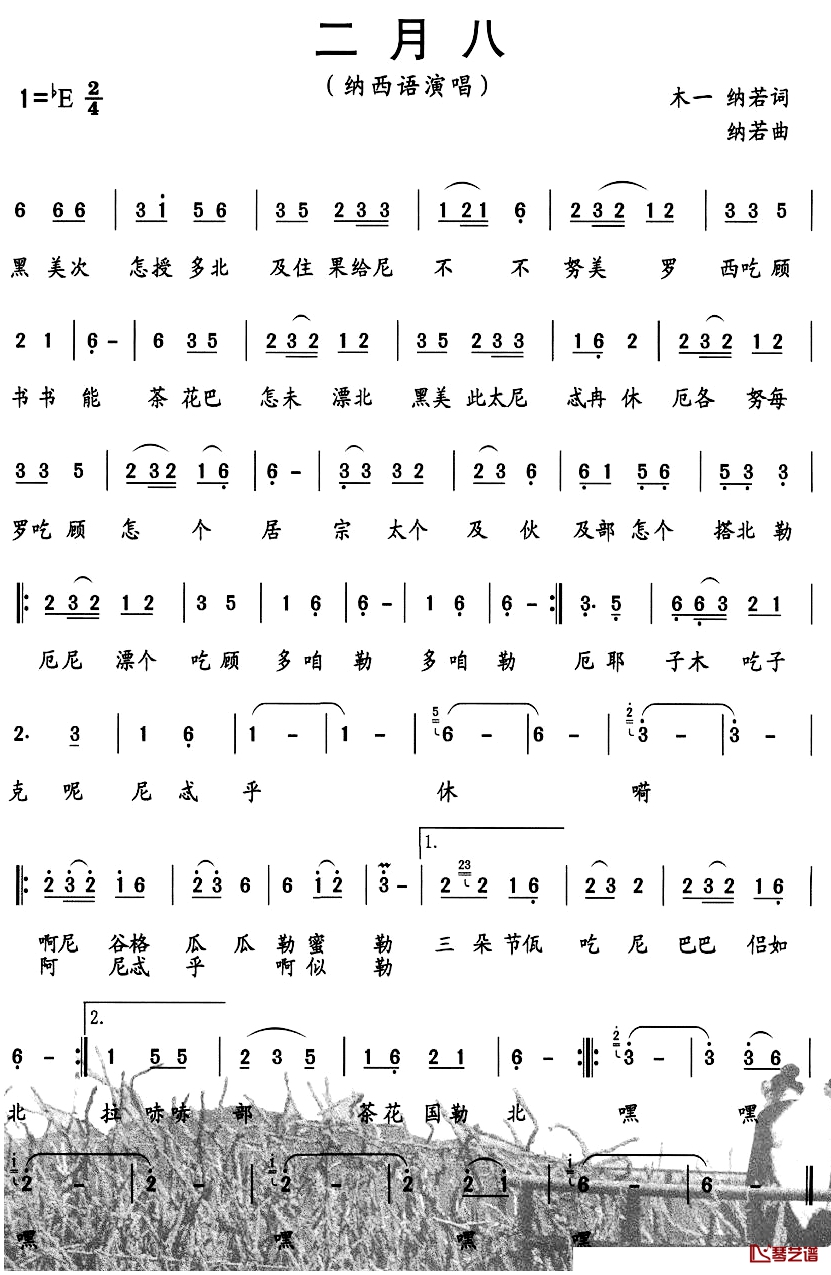 二月八
(纳西语演唱)
1=♭E 2/4
木一 纳若词
纳若曲
6 6 6 | 3 1 5 6 | 3 5 2 3 3 | 1 2 1 6 | 2 3 2 1 2 | 3 3 5 |
黑 美次 怎授 多北 及住 果给尼 不 不 努美 罗 西吃 顾
2 1 | 6 - | 6 3 5 | 2 3 2 1 2 | 3 5 2 3 3 | 1 6 2 | 2 3 2 1 2 |
书 书 能 茶 花巴 怎未 漂北 黑美 此太尼 忒冉 休 厄各 努每
3 3 5 | 2 3 2 1 6 | 6 - | 3 3 3 2 | 2 3 6 | 6 1 5 6 | 5 3 3 |
罗吃 顾 怎 个 居 宗 太个 及 伙 及部 怎个 搭北 勒
|: 2 3 2 1 2 | 3 5 | 1 6 | 6 - | 1 6 | 6 - :| 3. 5 | 6 6 3 2 1 |
厄尼 漂个 吃顾 多咱 勒 多咱 勒 厄耶 子木 吃子
2. 3 | 1 6 | 1 - | 1 - | 5 6 - | 6 - | 2 3 - | 3 - |
克 呢 尼 忒 乎 休 嗬
1.
|: 2 3 2 1 6 | 2 3 6 | 6 1 2 | 3 - | 2 23 2 1 6 | 2 3 2 | 2 3 2 1 6 |
啊尼 谷格 瓜 瓜 勒 蜜 勒 三 朵 节佤 吃 尼 巴巴 侣如
阿 尼忒 乎 啊似 勒
2.
6 - :| 1 5 5 | 2 3 5 | 1 6 2 1 | 6 - :| 2 3 - | 3 3 6 |
北 拉 哧哧 部 茶花 国勒 北 嘿 嘿
1 2 - | 2 - | 1 2 - | 2 2 1 | 1 6 - | 6 - ‖
嘿 嘿 嘿 嘿
琴艺谱